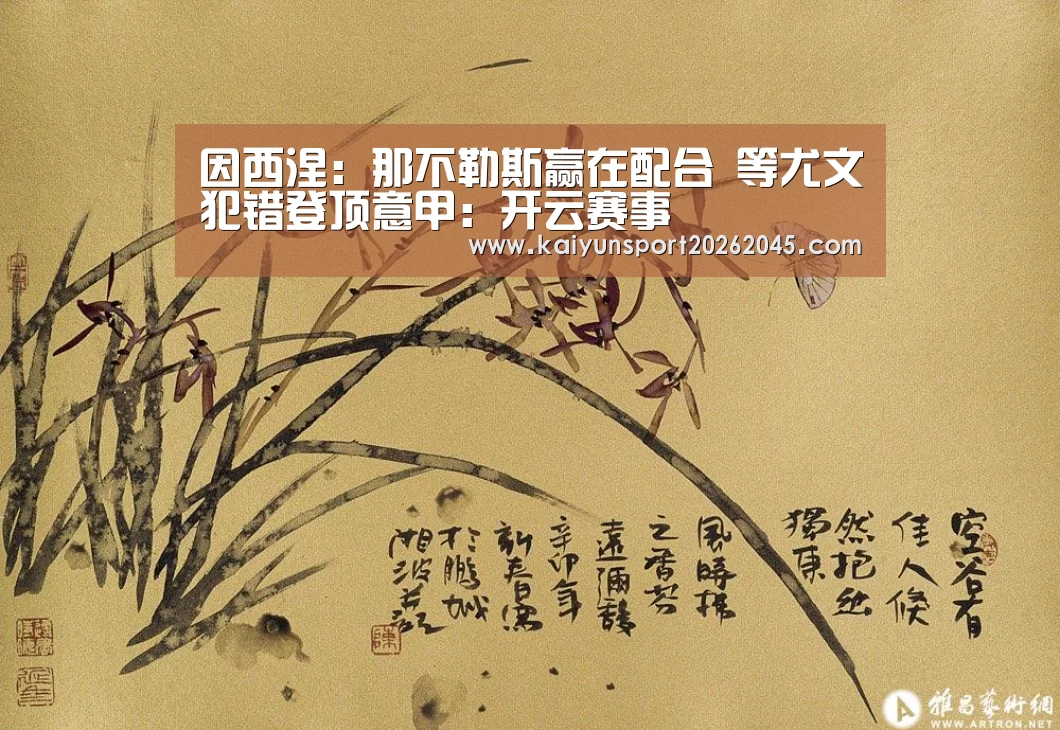 因西涅：那不勒斯赢在配合 等尤文
犯错登顶意甲：开云赛事
www.kaiyunsport20262045.com
空谷有
佳人候
然抱幽
獨東
風時拂
之香芬
遠彌馥
辛卯年
新春寫
於鵬城
湘波并記
陳
雅昌藝術網
WWW.ARTRON.NET